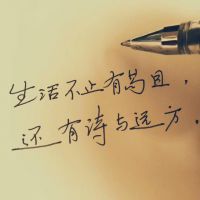 生活不止有苟且，
还有诗与远方．